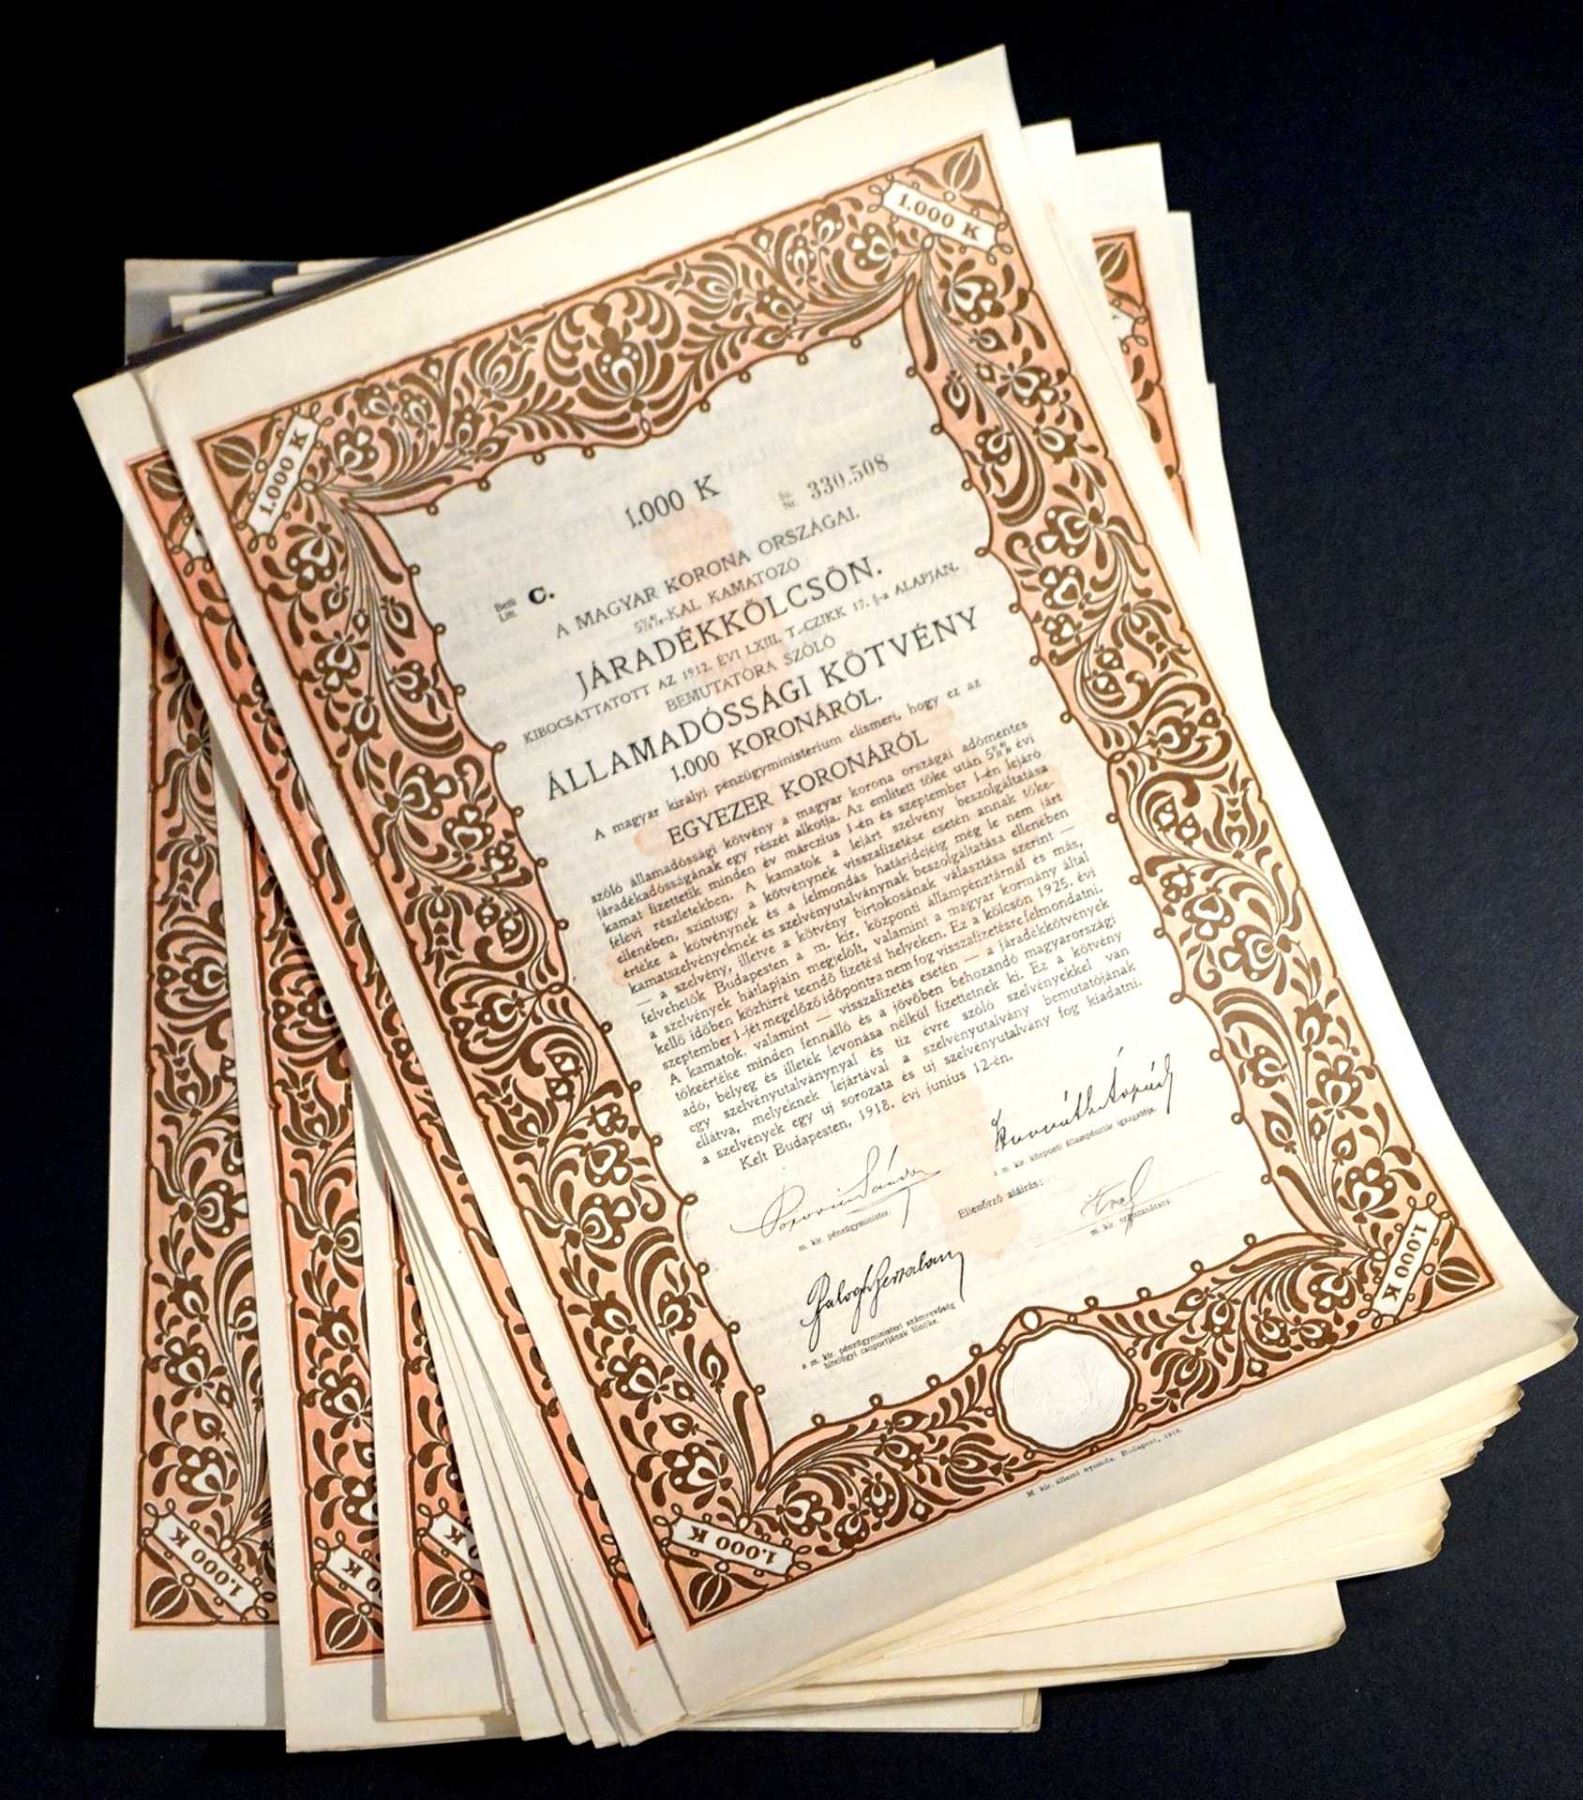 1.000 K
1.000 K
1.000 K
Sz. Nr. 330.508
Betű Litt. C.
A MAGYAR KORONA ORSZÁGAI
5½%-KAL KAMATOZÓ
JÁRADÉKKÖLCSÖN.
KIBOCSÁTTATOTT AZ 1912. ÉVI LXIII. T.-CZIKK 17. §-a ALAPJÁN.
BEMUTATÓRA SZÓLÓ
ÁLLAMADÓSSÁGI KÖTVÉNY
1.000 KORONÁRÓL.
A magyar királyi pénzügyministerium elismeri, hogy ez az
EGYEZER KORONÁRÓL
szóló államadóssági kötvény a magyar korona országai adómentes
járadékadósságának egy részét alkotja. Az emlitett tőke után 5½% évi
kamat fizettetik minden év márczius 1-én és szeptember 1-én lejáró
félévi részletekben. A kamatok a lejárt szelvény beszolgáltatása
ellenében, szintugy a kötvénynek visszafizetése esetén annak tőke-
értéke a kötvénynek és a felmondás határidejéig még le nem járt
kamatszelvényeknek és szelvényutalványnak beszolgáltatása ellenében
— a szelvény, illetve a kötvény birtokosának választása szerint —
felvehetők Budapesten a m. kir. központi állampénztárnál és más,
a szelvények hátlapjain megjelölt, valamint a magyar kormány által
kellő időben közhirré teendő fizetési helyeken. Ez a kölcsön 1925. évi
szeptember 1-jét megelőző időpontra nem fog visszafizetésre felmondatni.
A kamatok, valamint — visszafizetés esetén — a járadékkötvények
tőkeértéke minden fennálló és a jövőben behozandó magyarországi
adó, bélyeg és illeték levonása nélkül fizettetnek ki. Ez a kötvény
egy szelvényutalványnyal és tiz évre szóló szelvényekkel van
ellátva, melyeknek lejártával a szelvényutalvány bemutatójának
a szelvények egy uj sorozata és uj szelvényutalvány fog kiadatni.
Kelt Budapesten, 1918. évi junius 12-én.
Popovics Sándor
m. kir. pénzügyminister.
Horváth Árpád
a m. kir. központi állampénztár igazgatója.
Ellenőrző aláirás:
m. kir. számtanácsos.
Balogh Bertalan
a m. kir. pénzügyministeri számvevőség
hitelügyi csoportjának főnöke.
1.000 K
1.000 K
M. kir. állami nyomda. Budapest, 1918.
1.000 K